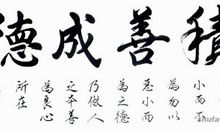 積善成德
小而不
為勿以
惡小而
為之德
乃做人
之本善
為良心
所在